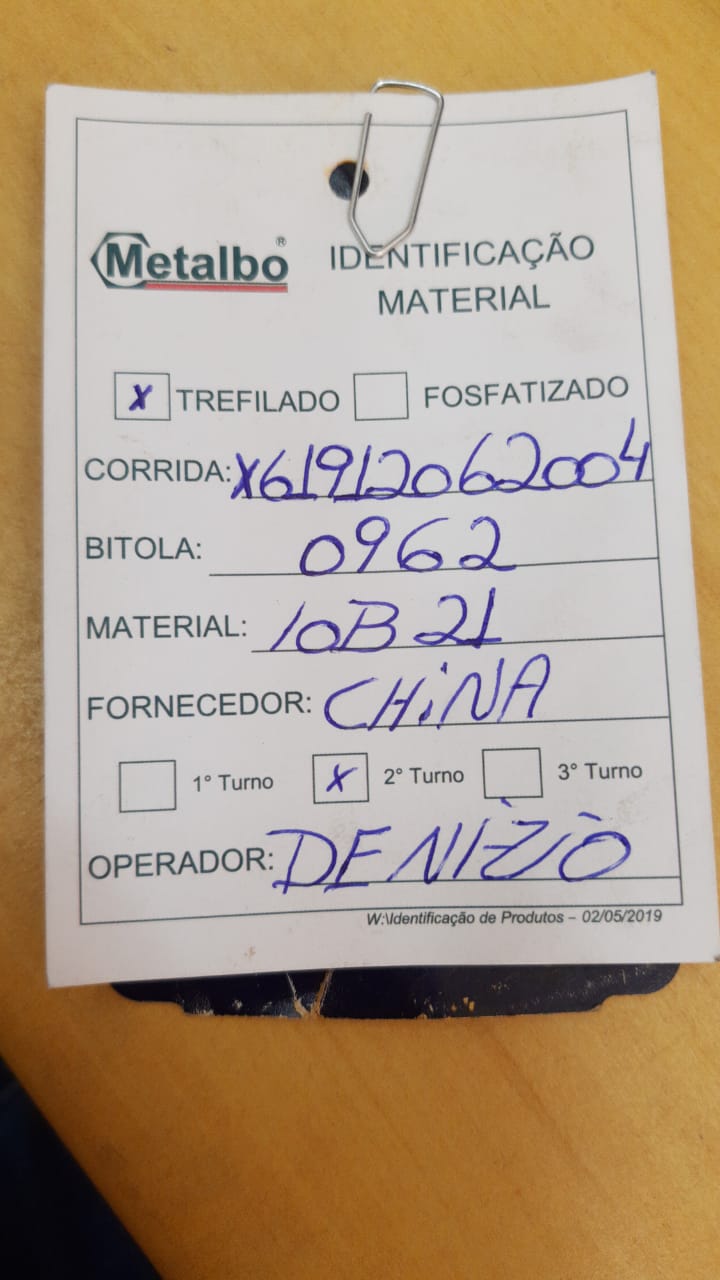 Metalbo®
IDENTIFICAÇÃO
MATERIAL
X TREFILADO FOSFATIZADO
CORRIDA: X61912062004
BITOLA: 0962
MATERIAL: 10B21
FORNECEDOR: CHiNA
1° Turno X 2° Turno 3° Turno
OPERADOR: DENIZIO
W:\Identificação de Produtos – 02/05/2019